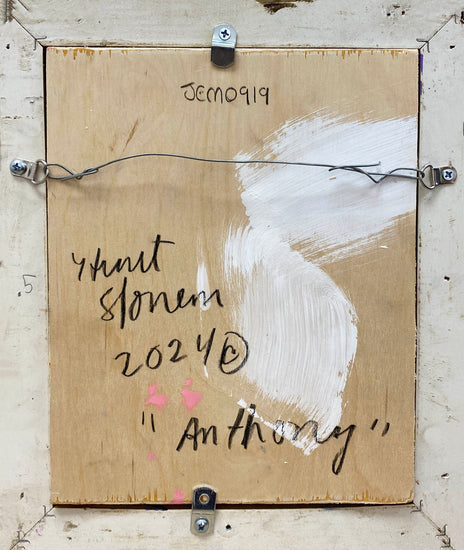 JEM0919
Hunt
Slonem
2024 ©
"Anthony"
5